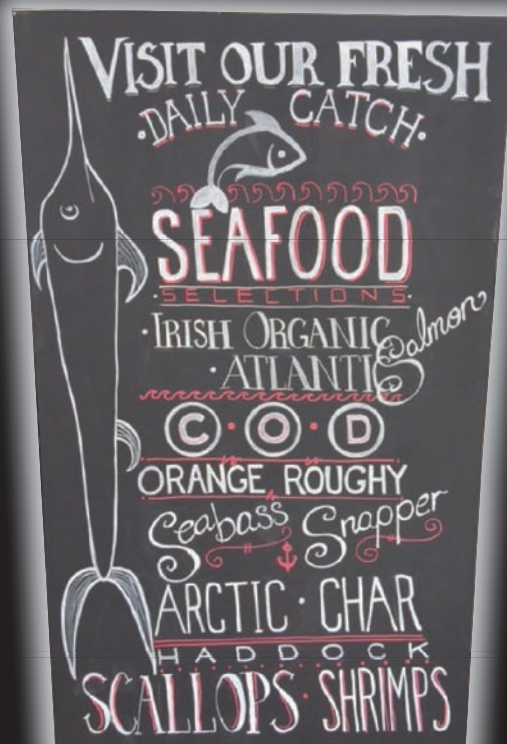 VISIT OUR FRESH
·DAILY CATCH·
SEAFOOD
·SELECTIONS·
·IRISH ORGANIC Salmon
·ATLANTIC
C·O·D
ORANGE ROUGHY
Seabass Snapper
ARCTIC·CHAR
HADDOCK
SCALLOPS·SHRIMPS